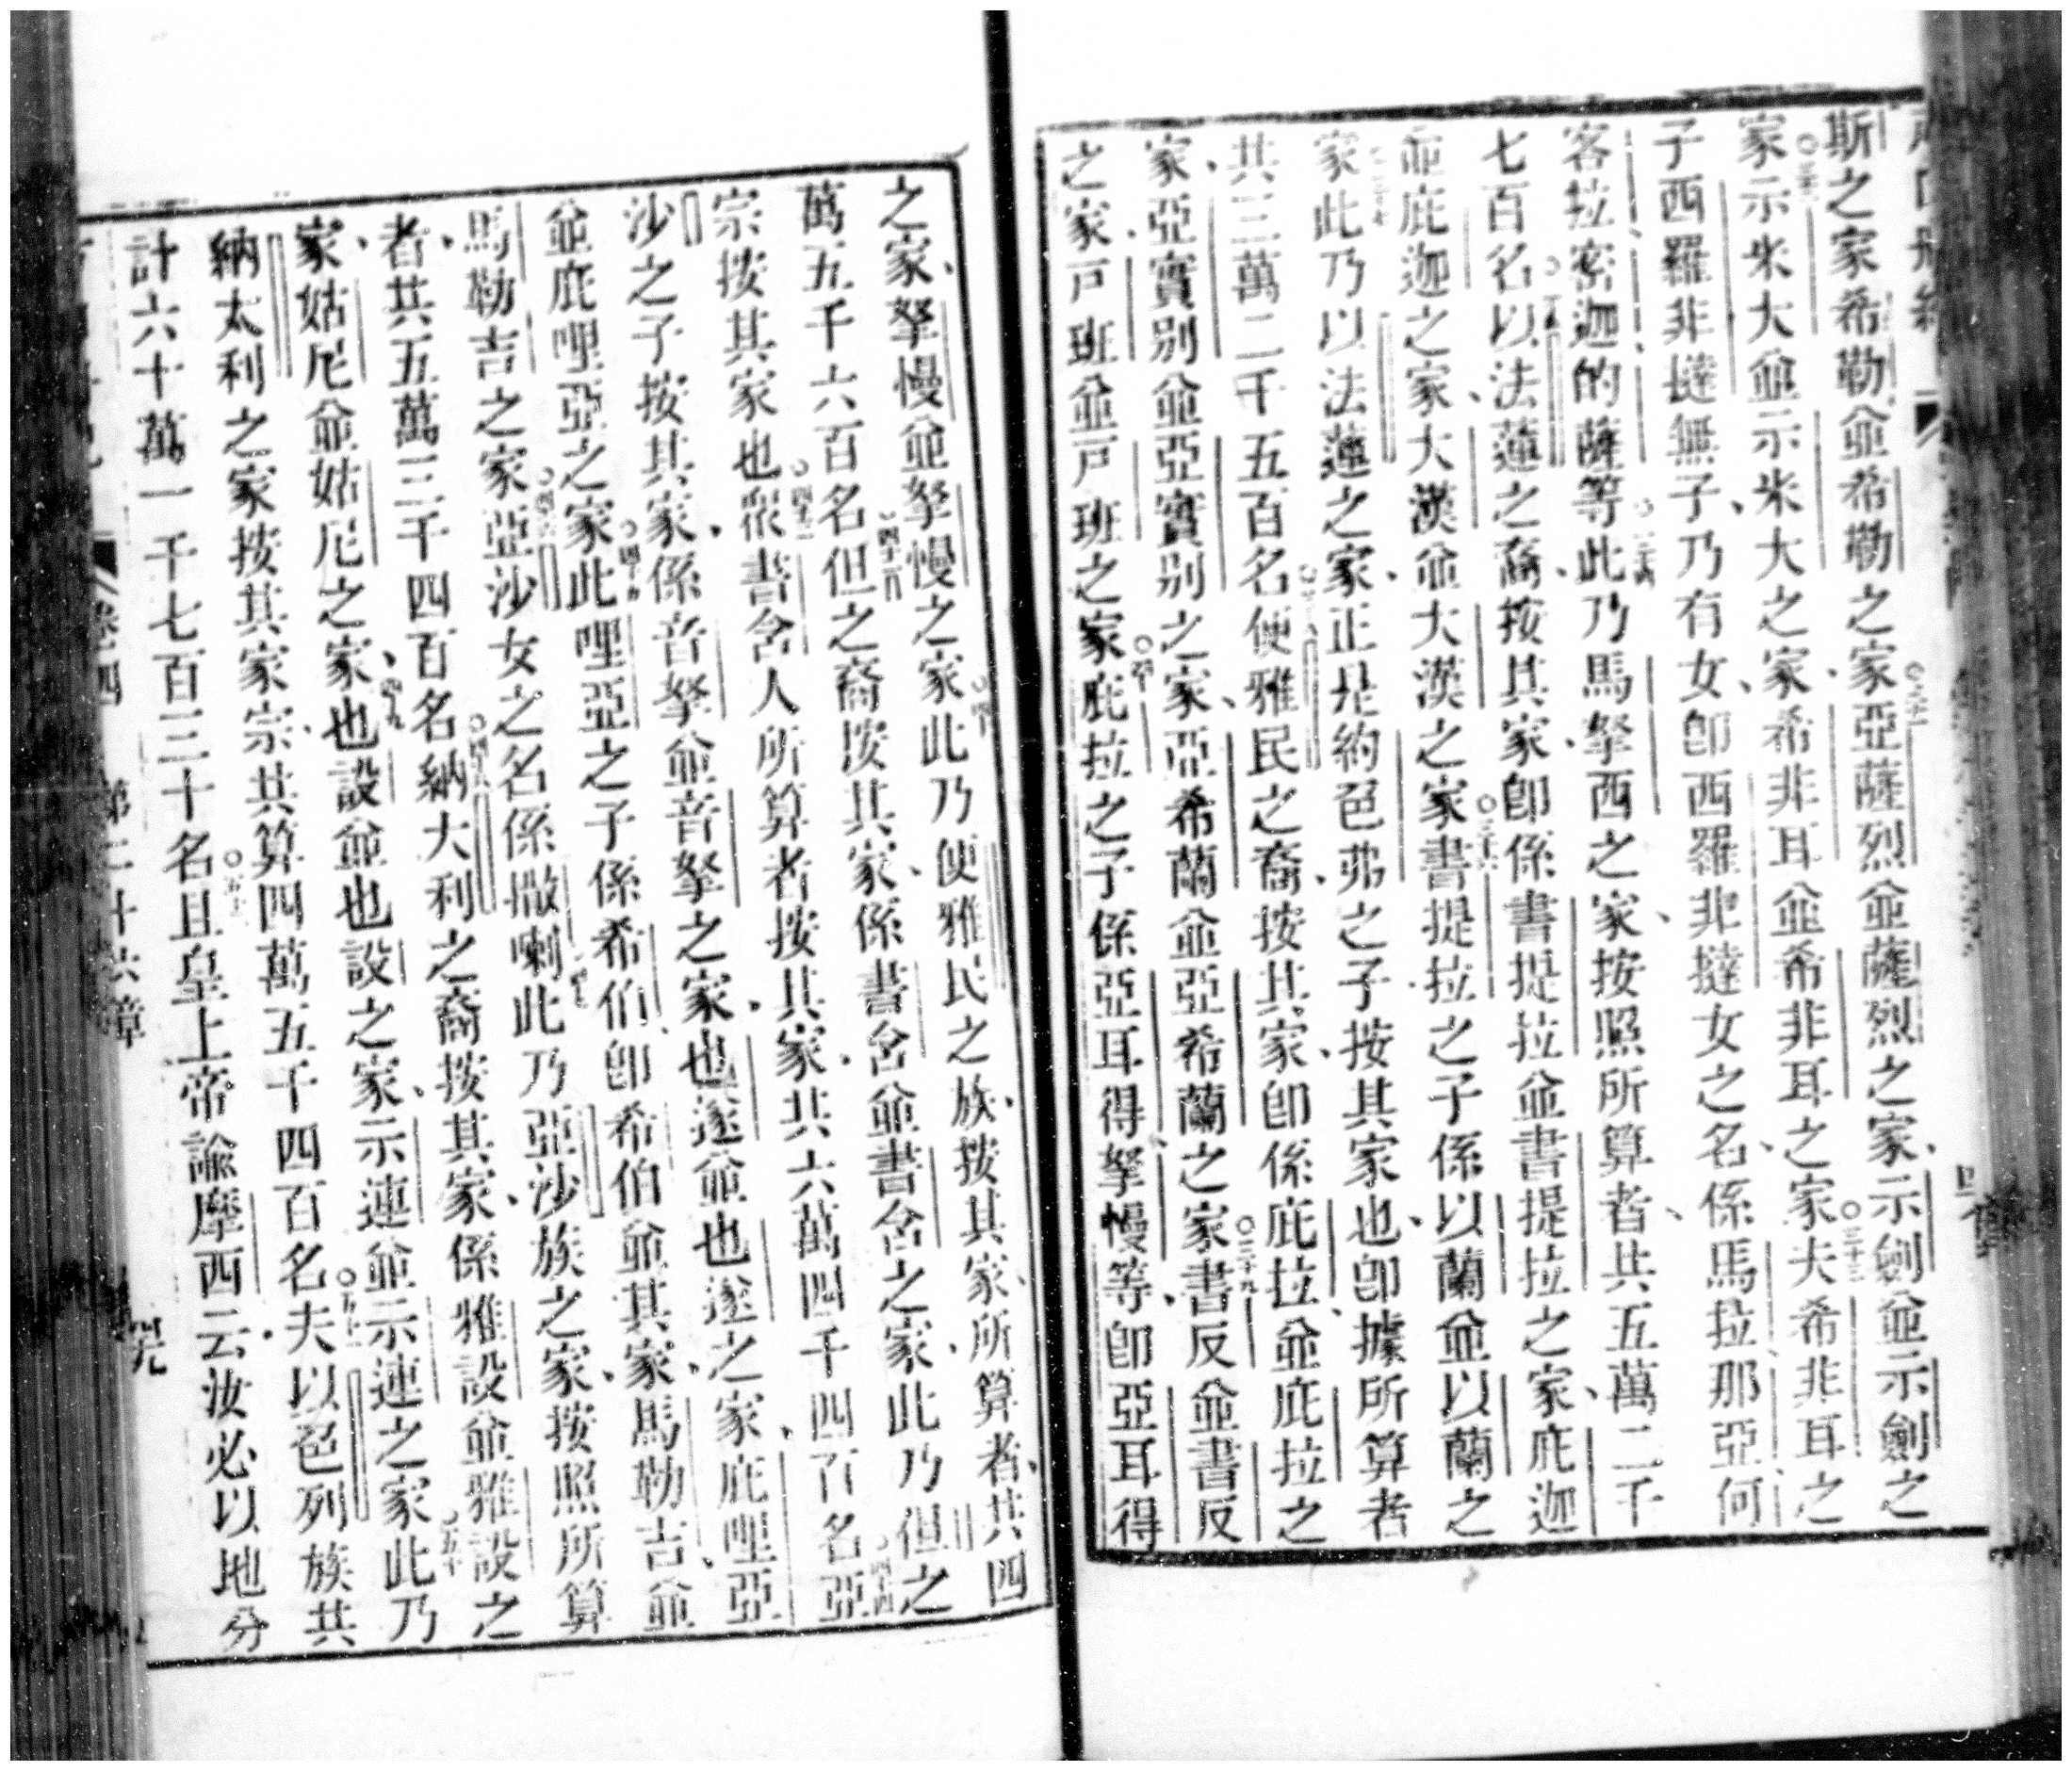 斯之家希勒並希勒之家○三十二亞薩烈並薩烈之家示劍並示劍之
家○三十二示米大並示米大之家希非耳並希非耳之家○三十三夫希非耳之
子西羅非撻無子乃有女卽西羅非撻女之名係馬拉那亞何
客拉密迦的薩等○三十四此乃馬拏西之家按照所算者共五萬二千
七百名○三十五以法蓮之裔按其家卽係書提拉並書提拉之家庇迦
並庇迦之家大漢並大漢之家○三十六書提拉之子係以蘭並以蘭之
家○三十七此乃以法蓮之家正是約色弗之子按其家也卽據所算者
共三萬二千五百名○三十八便雅民之裔按其家卽係庇拉並庇拉之
家亞實別並亞實別之家亞希蘭並亞希蘭之家○三十九書反並書反
之家戸班並戸班之家○四十庇拉之子係亞耳得拏慢等卽亞耳得
之家拏慢並拏慢之家○四十一此乃便雅民之族按其家所算者共四
萬五千六百名○四十二但之裔按其家係書含並書含之家此乃但之
宗按其家也○四十三衆書含人所算者按其家共六萬四千四百名○四十四亞
沙之子按其家係音拏並音拏之家也遂並也遂之家庇哩亞
並庇哩亞之家○四十五此哩亞之子係希伯卽希伯並其家馬勒吉並
馬勒吉之家○四十六亞沙女之名係撒喇○四十七此乃亞沙族之家按照所算
者共五萬三千四百名○四十八納大利之裔按其家係雅設並雅設之
家姑尼並姑尼之家○四十九也設並也設之家示連並示連之家○五十此乃
納太利之家按其家宗共算四萬五千四百名○五十一夫以色列族共
計六十萬一千七百三十名○五十二且皇上帝諭摩西云汝必以地分
卷四 第二十六章